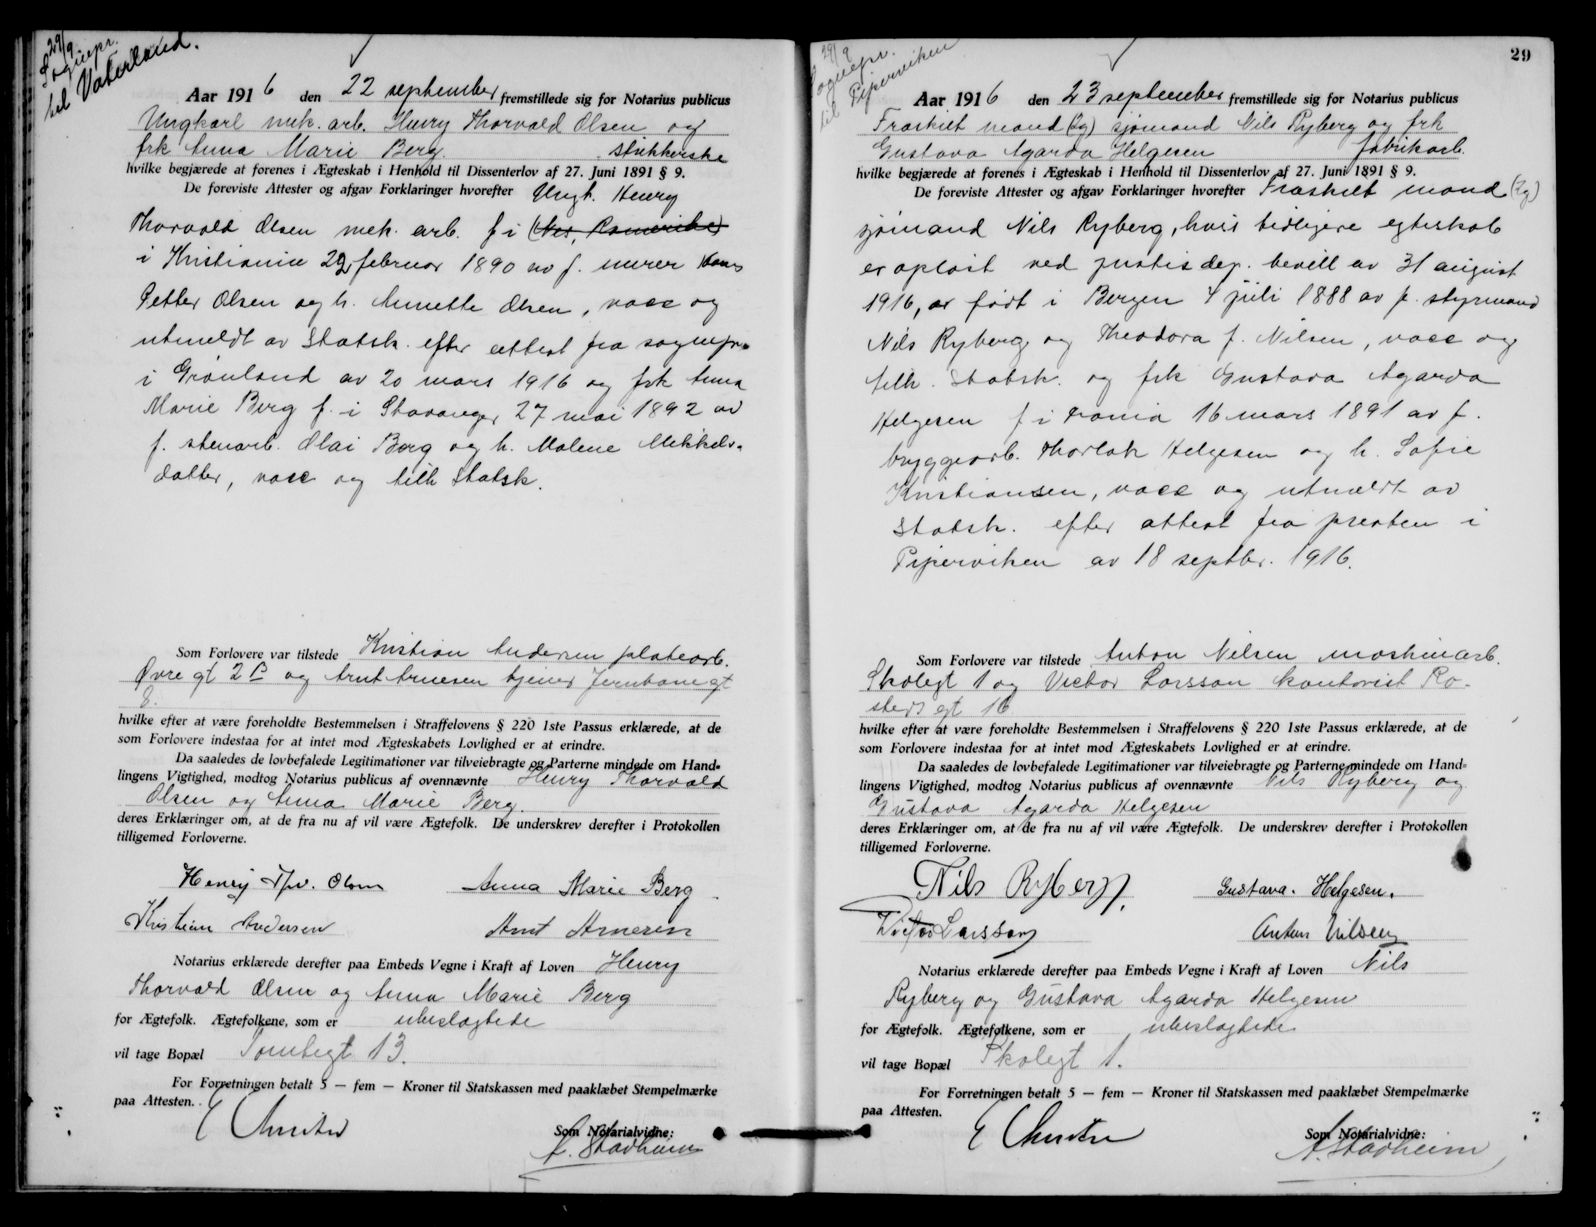 29/9
Sognepr.
til Vaterland.
Aar 1916 den 22 september fremstillede sig for Notarius publicus
Ungkarl mek. arb. Henry Thorvald Olsen og
frk Anna Marie Berg. strikkerske
hvilke begjærede at forenes i Ægteskab i Henhold til Dissenterlov af 27. Juni 1891 § 9.
De foreviste Attester og afgav Forklaringer hvorefter Ungk. Henry
Thorvald Olsen mek. arb. f i (Nes, Romerike)
i Kristiania 22 februar 1890 av f. murer Hans
Petter Olsen og h. Annette Olsen, vacc og
utmeldt av Statsk. efter attest fra sognepr.
i Grønland av 20 mars 1916 og frk Anna
Marie Berg f. i Stavanger 27 mai 1892 av
f. stenarb. Olai Berg og h. Malene Mikkels-
datter, vacc og tilh Statsk.
Som Forlovere var tilstede Kristian Andersen platearb.
Øvre gt 2 C og Arnt Arnesen tjener Jernbanegt
8.
hvilke efter at være foreholdte Bestemmelsen i Straffelovens § 220 1ste Passus erklærede, at de
som Forlovere indestaa for at intet mod Ægteskabets Lovlighed er at erindre.
Da saaledes de lovbefalede Legitimationer var tilveiebragte og Parterne mindede om Hand-
lingens Vigtighed, modtog Notarius publicus af ovennævnte Henry Thorvald
Olsen og Anna Marie Berg.
deres Erklæringer om, at de fra nu af vil være Ægtefolk. De underskrev derefter i Protokollen
tilligemed Forloverne.
Henry Thv. Olsen Anna Marie Berg
Kristian Andersen Arnt Arnesen
Notarius erklærede derefter paa Embeds Vegne i Kraft af Loven Henry
Thorvald Olsen og Anna Marie Berg
for Ægtefolk. Ægtefolkene, som er ubeslægtede
vil tage Bopæl Tomtegt 13.
For Forretningen betalt 5 — fem — Kroner til Statskassen med paaklæbet Stempelmærke
paa Attesten.
Som Notarialvidne:
A. Stadheim
29
29/9
Sognepr.
til Piperviken
Aar 1916 den 23 september fremstillede sig for Notarius publicus
Fraskilt mand (Lg) sjømand Nils Ryberg og frk
Gustava Agarda Helgesen fabrikarb.
hvilke begjærede at forenes i Ægteskab i Henhold til Dissenterlov af 27. Juni 1891 § 9.
De foreviste Attester og afgav Forklaringer hvorefter Fraskilt mand (Lg)
sjømand Nils Ryberg, hvis tidligere egteskab
er opløst ved justisdep. bevill av 31 august
1916, er født i Bergen 4 juli 1888 av f. styrmand
Nils Ryberg og Theodora f. Nilsen, vacc og
tilh. Statsk. og frk Gustava Agarda
Helgesen f i Xania 16 mars 1891 av f.
bryggearb. Thorlak Helgesen og h. Sofie
Kristiansen, vacc og utmeldt av
Statsk. efter attest fra presten i
Piperviken av 18 septbr. 1916.
Som Forlovere var tilstede Anton Nilsen maskinarb.
Skolegt 1 og Victor Larsson kontorist Ro-
steds gt 16
hvilke efter at være foreholdte Bestemmelsen i Straffelovens § 220 1ste Passus erklærede, at de
som Forlovere indestaa for at intet mod Ægteskabets Lovlighed er at erindre.
Da saaledes de lovbefalede Legitimationer var tilveiebragte og Parterne mindede om Hand-
lingens Vigtighed, modtog Notarius publicus af ovennævnte Nils Ryberg og
Gustava Agarda Helgesen
deres Erklæringer om, at de fra nu af vil være Ægtefolk. De underskrev derefter i Protokollen
tilligemed Forloverne.
Nils Ryberg. Gustava. Helgesen.
Victor Larsson Anton Nilsen
Notarius erklærede derefter paa Embeds Vegne i Kraft af Loven Nils
Ryberg og Gustava Agarda Helgesen
for Ægtefolk. Ægtefolkene, som er ubeslægtede
vil tage Bopæl Skolegt 1.
For Forretningen betalt 5 — fem — Kroner til Statskassen med paaklæbet Stempelmærke
paa Attesten.
Som Notarialvidne:
A. Stadheim